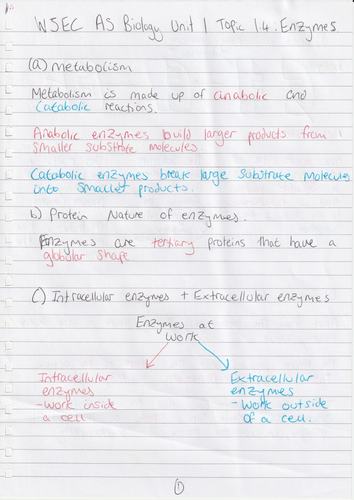 WJEC AS Biology Unit 1 Topic 1.4. Enzymes.
(a) Metabolism
Metabolism is made up of anabolic and
catabolic reactions.
Anabolic enzymes build larger products from
smaller substrate molecules.
Catabolic enzymes break large substrate molecules
into smaller products.
b) Protein Nature of enzymes.
Enzymes are tertiary proteins that have a
globular shape
C) Intracellular enzymes + Extracellular enzymes
Enzymes at
work
Intracellular
enzymes
- work inside
a cell
Extracellular
enzymes
- work outside
of a cell.
1